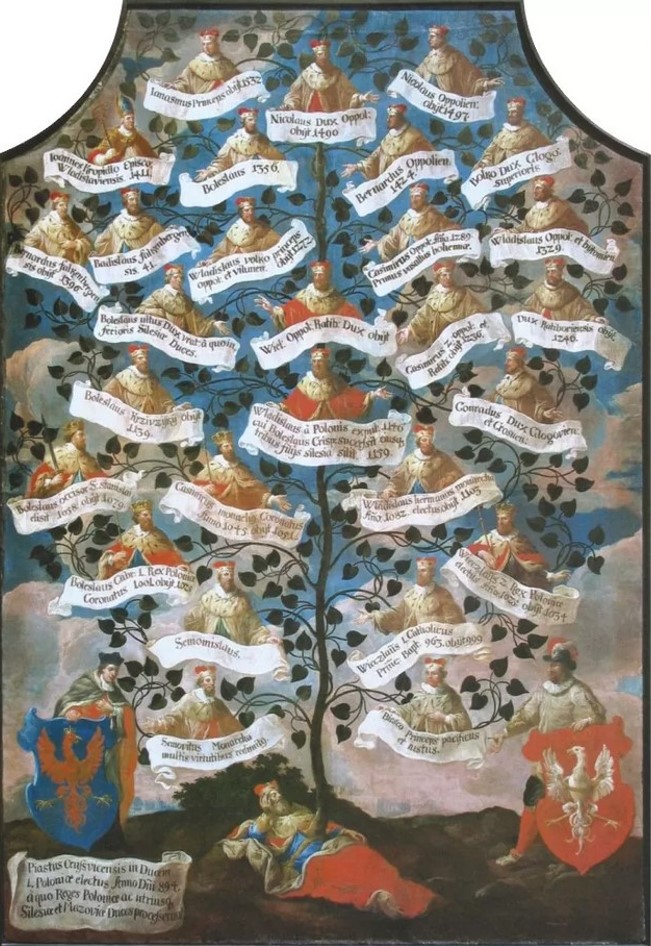 Ianassius Princeps obijt 1532
Nicolaus Dux Oppol:
obijt 1490
Nicolaus Oppolien:
obijt 1497
Ioannes Kropidlo Episco
Wladislaviensis 1411
Boleslaus 1356.
Bernardus Oppolien.
1424.
Bolko Dux Glogo:
superioris
Bernardus falgenbergen
sis obijt 1396
Bolislaus falgenbergen
sis. 41.
Wladislaus volko princeps
oppol: et vilunen. obijt 1272
Casimirus Oppol: Año 1289
Primus vasallus bohemiæ.
Wladislaus Oppol: et bithomien.
1329.
Boleslaus altus Dux
ferioris Silesiæ Duces.
Wiel. Oppol: Ratib: Dux obijt
Casimirus 2. oppol: et
Ratib: obijt 1236.
Dux Ratiboriensis obijt
1246.
Boleslaus Krzivzvsty obijt
1139.
Wladislaus à Polonis expul: 1146
cui Boleslaus Crispus succeßit eiusq
tribus filijs silesia silit 1159.
Conradus Dux Glogovien:
et Crosien:
Boleslaus occisor S. Stanislai
1058 obijt 1079
Casimirus monachus Coronatus
Anno 1045 obijt 1091
Wladislaus hermanus monarcha
Año 1082. electus obijt 1103
Boleslaus Chbr: I. Rex Poloniæ
Coronatus 1001. obijt 1025
Wieczlaus 2. Rex Poloniæ
electus Anno 1025 obijt 1034
Semomislaus.
Wieczlaus I. Catholicus
Princ: Bapt: 963. obijt 999
Semovitus Monarcha
multis virtutibus
Princeps pacificus
et iustus.
Piastus Crusvicensis in Ducem
I. Poloniæ electus Anno Dñi 894.
à quo Reges Poloniæ ac utriusq
Silesiæ et Mazoviæ Duces processerunt